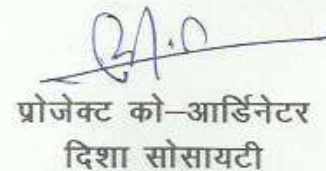 प्रोजेक्ट को–आर्डिनेटर
दिशा सोसायटी